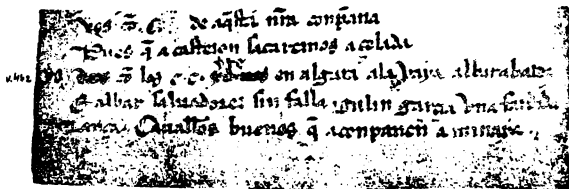 Vos cõ .C. de aq̃sta nr̃a conpaña
Pues q̃ a casteion sacaremos a çelada
vos cõ los .c.c. yd uos en algara ala vaya albarabarez
E albar saluadorez sin falla galin garcia vna fardida
Lança Caualleros buenos q̃ aconpanen a minaya